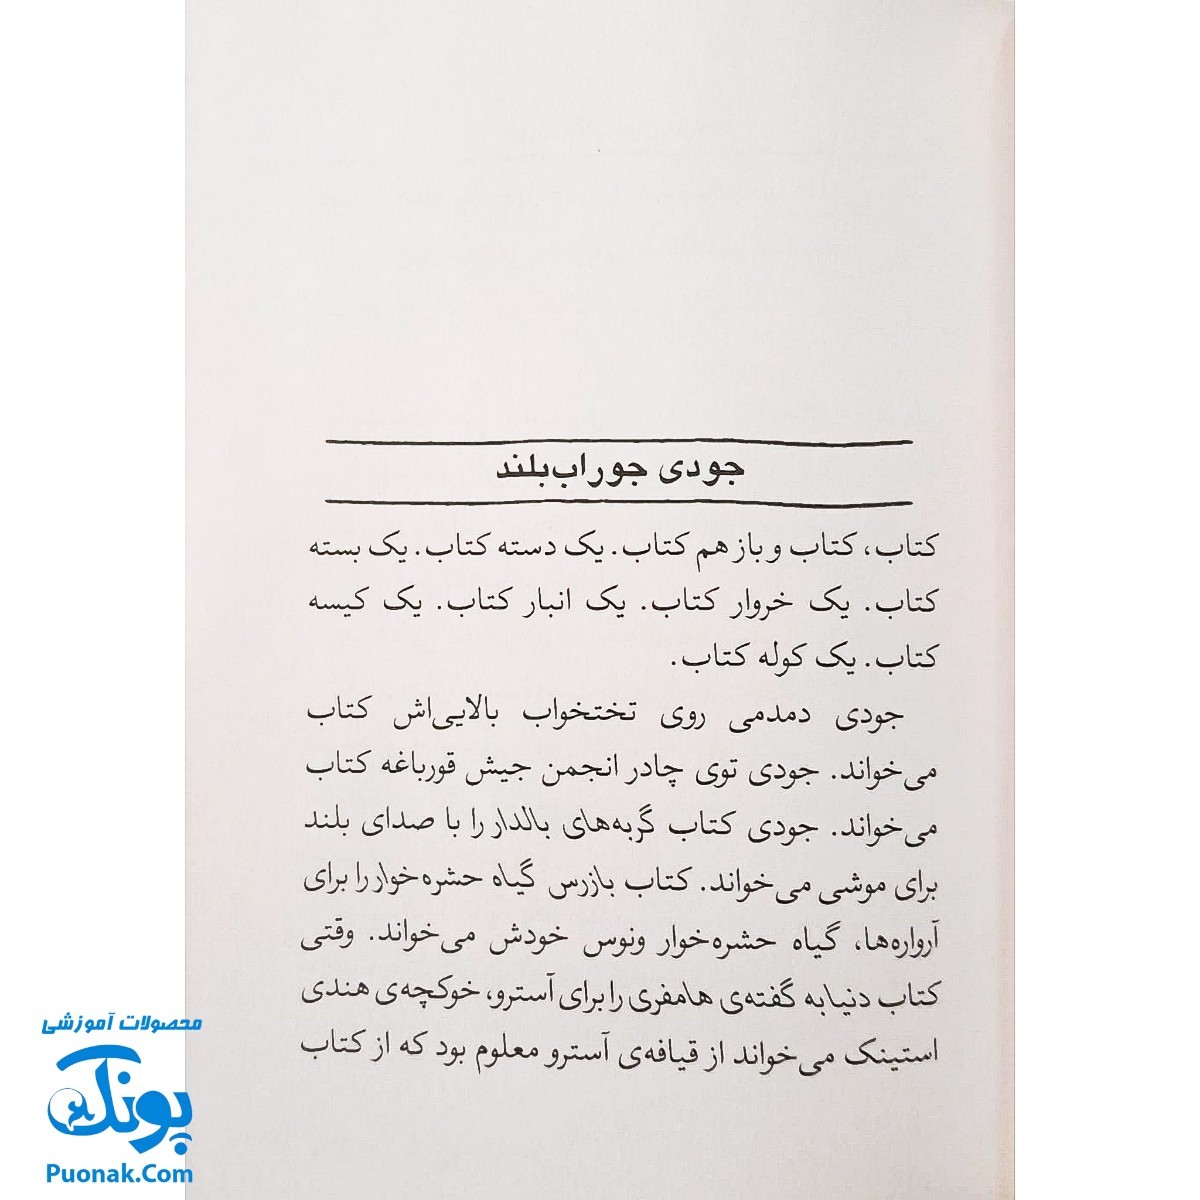 جودی جوراب‌بلند
کتاب، کتاب و باز هم کتاب. یک دسته کتاب. یک بسته
کتاب. یک خروار کتاب. یک انبار کتاب. یک کیسه
کتاب. یک کوله کتاب.
جودی دمدمی روی تختخواب بالایی‌اش کتاب
می‌خواند. جودی توی چادر انجمن جیش قورباغه کتاب
می‌خواند. جودی کتاب گربه‌های بالدار را با صدای بلند
برای موشی می‌خواند. کتاب بازرس گیاه حشره‌خوار را برای
آرواره‌ها، گیاه حشره‌خوار ونوس خودش می‌خواند. وقتی
کتاب دنیا به گفته‌ی هامفری را برای آسترو، خوکچه‌ی هندی
استینک می‌خواند از قیافه‌ی آسترو معلوم بود که از کتاب
محصولات آموزشی
پونک
Puonak.Com